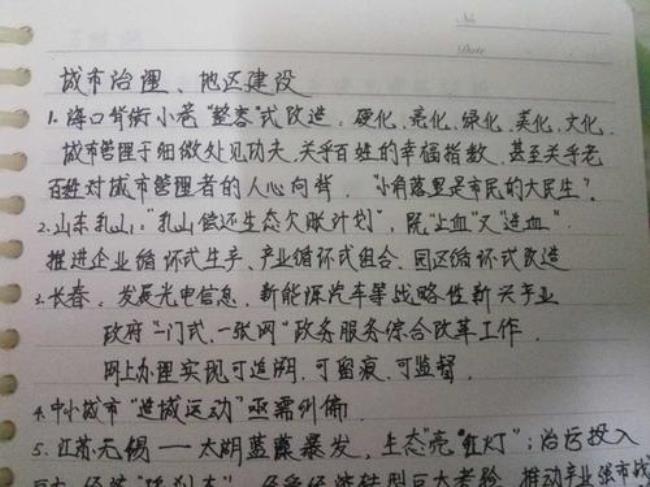 No
Date
城市治理、地区建设
1. 海口背街小巷"整容"式改造：硬化、亮化、绿化、美化、文化.
城市管理于细微处见功夫，关乎百姓的幸福指数，甚至关乎老
百姓对城市管理者的人心向背，"小角落里是市民的大民生".
2. 山东乳山："乳山偿还生态欠账计划"，既"止血"又"造血"
推进企业循环式生产、产业循环式组合、园区循环式改造
3. 长春：发展光电信息、新能源汽车等战略性新兴产业
政府"一门式、一张网"政务服务综合改革工作，
网上办理实现可追溯、可留痕、可监督.
4. 中小城市"造城运动"亟需纠偏
5. 江苏无锡——太湖蓝藻暴发，生态"亮"红灯"；治污投入
巨大，经济 转型巨大考验，推动产业强市战